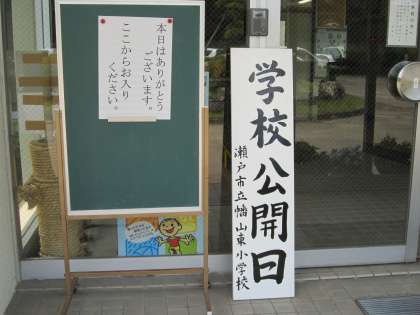 本日はありがとう
ございます。
ここからお入り
ください。
学校公開日
瀬戸市立幡山東小学校